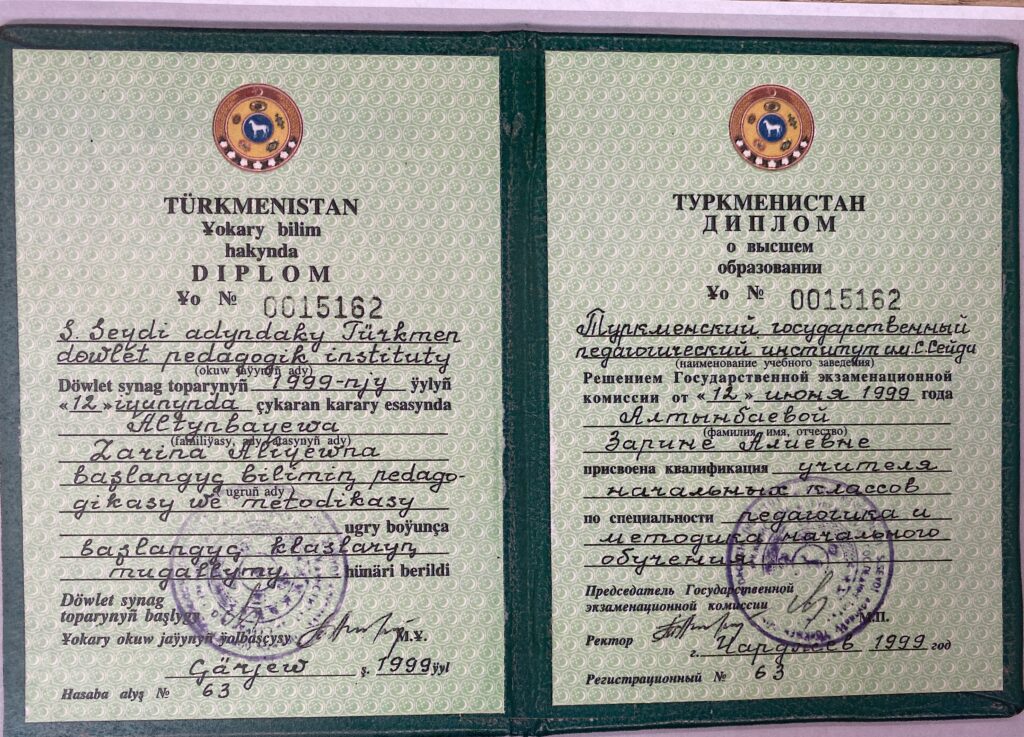 TÜRKMENISTAN
Ɏokary bilim
hakynda
DIPLOM
Ɏo № 0015162
S. Seydi adyndaky Türkmen
döwlet pedagogik instituty
(okuw jaɏynyñ ady)
Döwlet synag toparynyñ 1999-njy ɏylyñ
«12» iɏunynda çykaran karary esasynda
Altynbaɏewa
(familiɏasy, ady, atasynyñ ady)
Zarina Aliɏewna
başlangyç bilimiñ pedago-
ugruñ ady
gikasy we metodikasy
ugry boɏunça
başlangyç klaslaryñ
mugallymy hünäri berildi
Döwlet synag
toparynyñ başlygy
Ɏokary okuw jaɏynyñ ɏolbaşçysy
M.Ɏ.
Çärjew ş. 1999 ɏyl
Hasaba alyş № 63
ТУРКМЕНИСТАН
ДИПЛОМ
о высшем
образовании
Ɏo № 0015162
Туркменский государственный
педагогический институт им. С. Сейди
(наименование учебного заведения)
Решением Государственной экзаменационной
комиссии от «12» июня 1999 года
Алтынбаевой
(фамилия, имя, отчество)
Зарине Алиевне
присвоена квалификация учителя
начальных классов
по специальности педагогика и
методика начального
обучения
Председатель Государственной
экзаменационной комиссии
М.П.
Ректор
г. Чарджев 1999 год
Регистрационный № 63